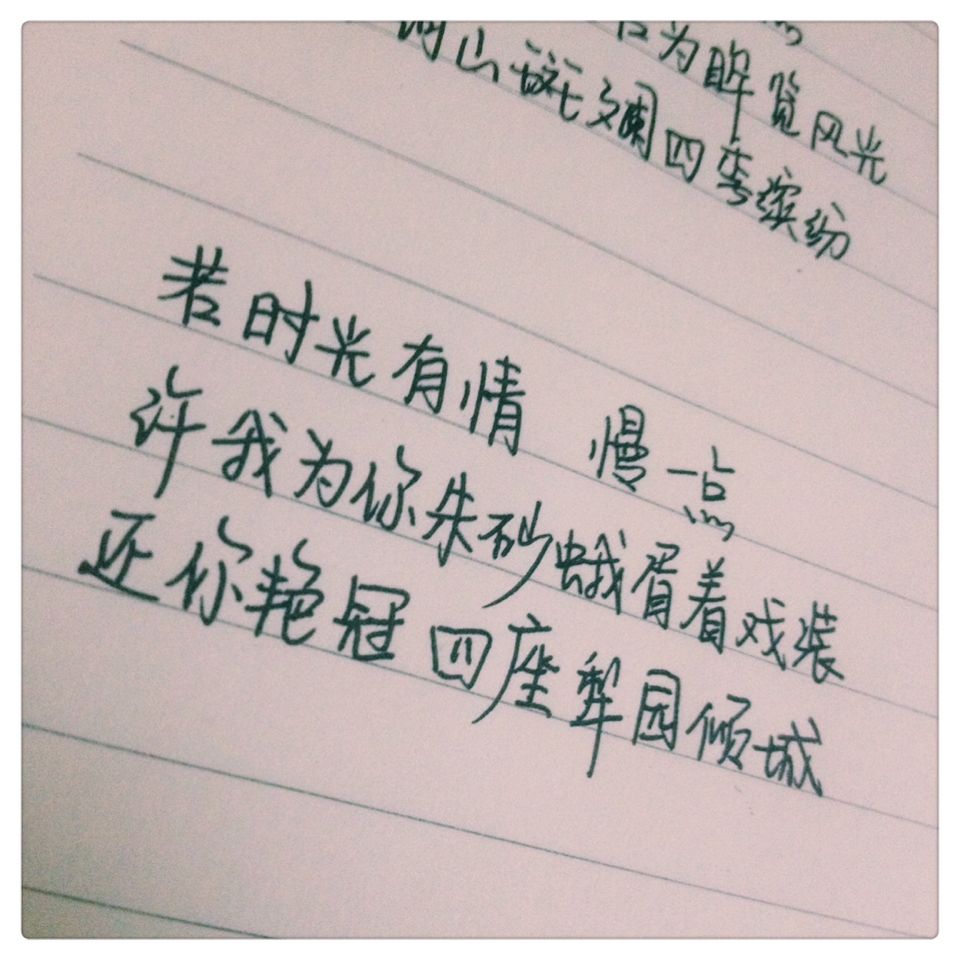 为眸览风光
河山斑斓四季缤纷
若时光有情 慢一点
许我为你朱砂蛾眉着戏装
还你艳冠四座犁园倾城